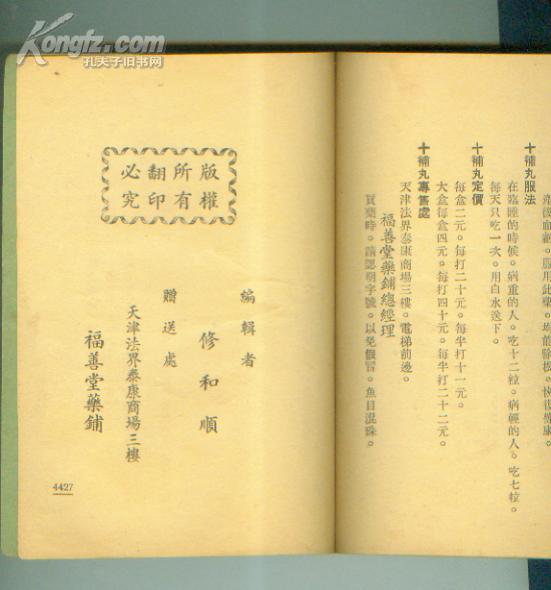 Kongfz.com
孔夫子旧书网
十補丸服法
在臨睡的時候。病重的人。吃十二粒。病輕的人。吃七粒。
每天只吃一次。用白水送下。
十補丸定價
每盒二元。每打二十元。每半打十一元。
大盒每盒四元。每打四十元。每半打二十二元。
十補丸專售處
天津法界泰康商場三樓。電梯前邊。
福善堂藥鋪總經理
買藥時。請認明字號。以免假冒。魚目混珠。
版權所有
翻印必究
編輯者
修和順
贈送處
天津法界泰康商場三樓
福善堂藥鋪
4427